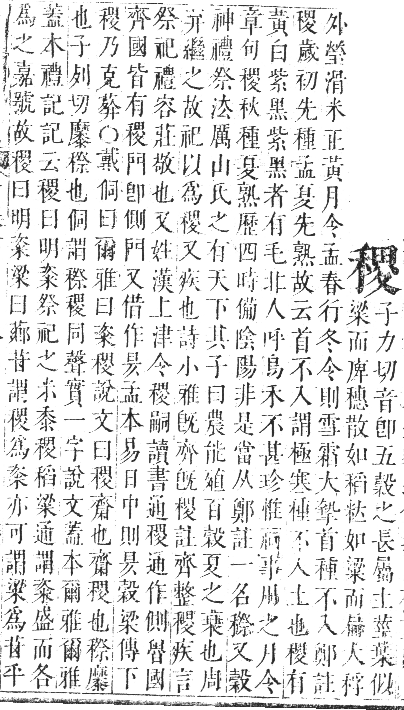 稷
子力切音卽五穀之長屬土莖葉似
梁而庳穗散如稻粒如粱而扁大稃
外瑩滑米正黃月令孟春行冬令則雪霜大摯首種不入鄭註
稷歲初先種孟夏先熟故云首不入謂極寒種不入土也稷有
黃白紫黑紫黑者有毛北人呼烏禾不甚珍惟祠事用之月令
章句稷秋種夏熟歷四時備陰陽非是當从鄭註一名穄又穀
神禮祭法厲山氏之有天下其子曰農能殖百穀夏之衰也周
弃繼之故祀以爲稷又疾也詩小雅旣齊旣稷註齊整稷疾言
祭祀禮容莊敬也又姓漢上津令稷嗣讀書通稷通作側魯國
齊國皆有稷門卽側門又借作昃孟本易日中則昃穀梁傳下
稷乃克葬○戴侗曰爾雅曰粢稷說文曰稷齋也齋稷也穄䵖
也子列切䵖穄也侗謂穄稷同聲實一字說文蓋本爾雅爾雅
蓋木禮記記云稷曰明粢祭祀之米黍稷稻粱通謂粢盛而各
爲之嘉號故稷曰明粢粱曰薌萁謂稷爲粢亦可謂粱爲萁乎